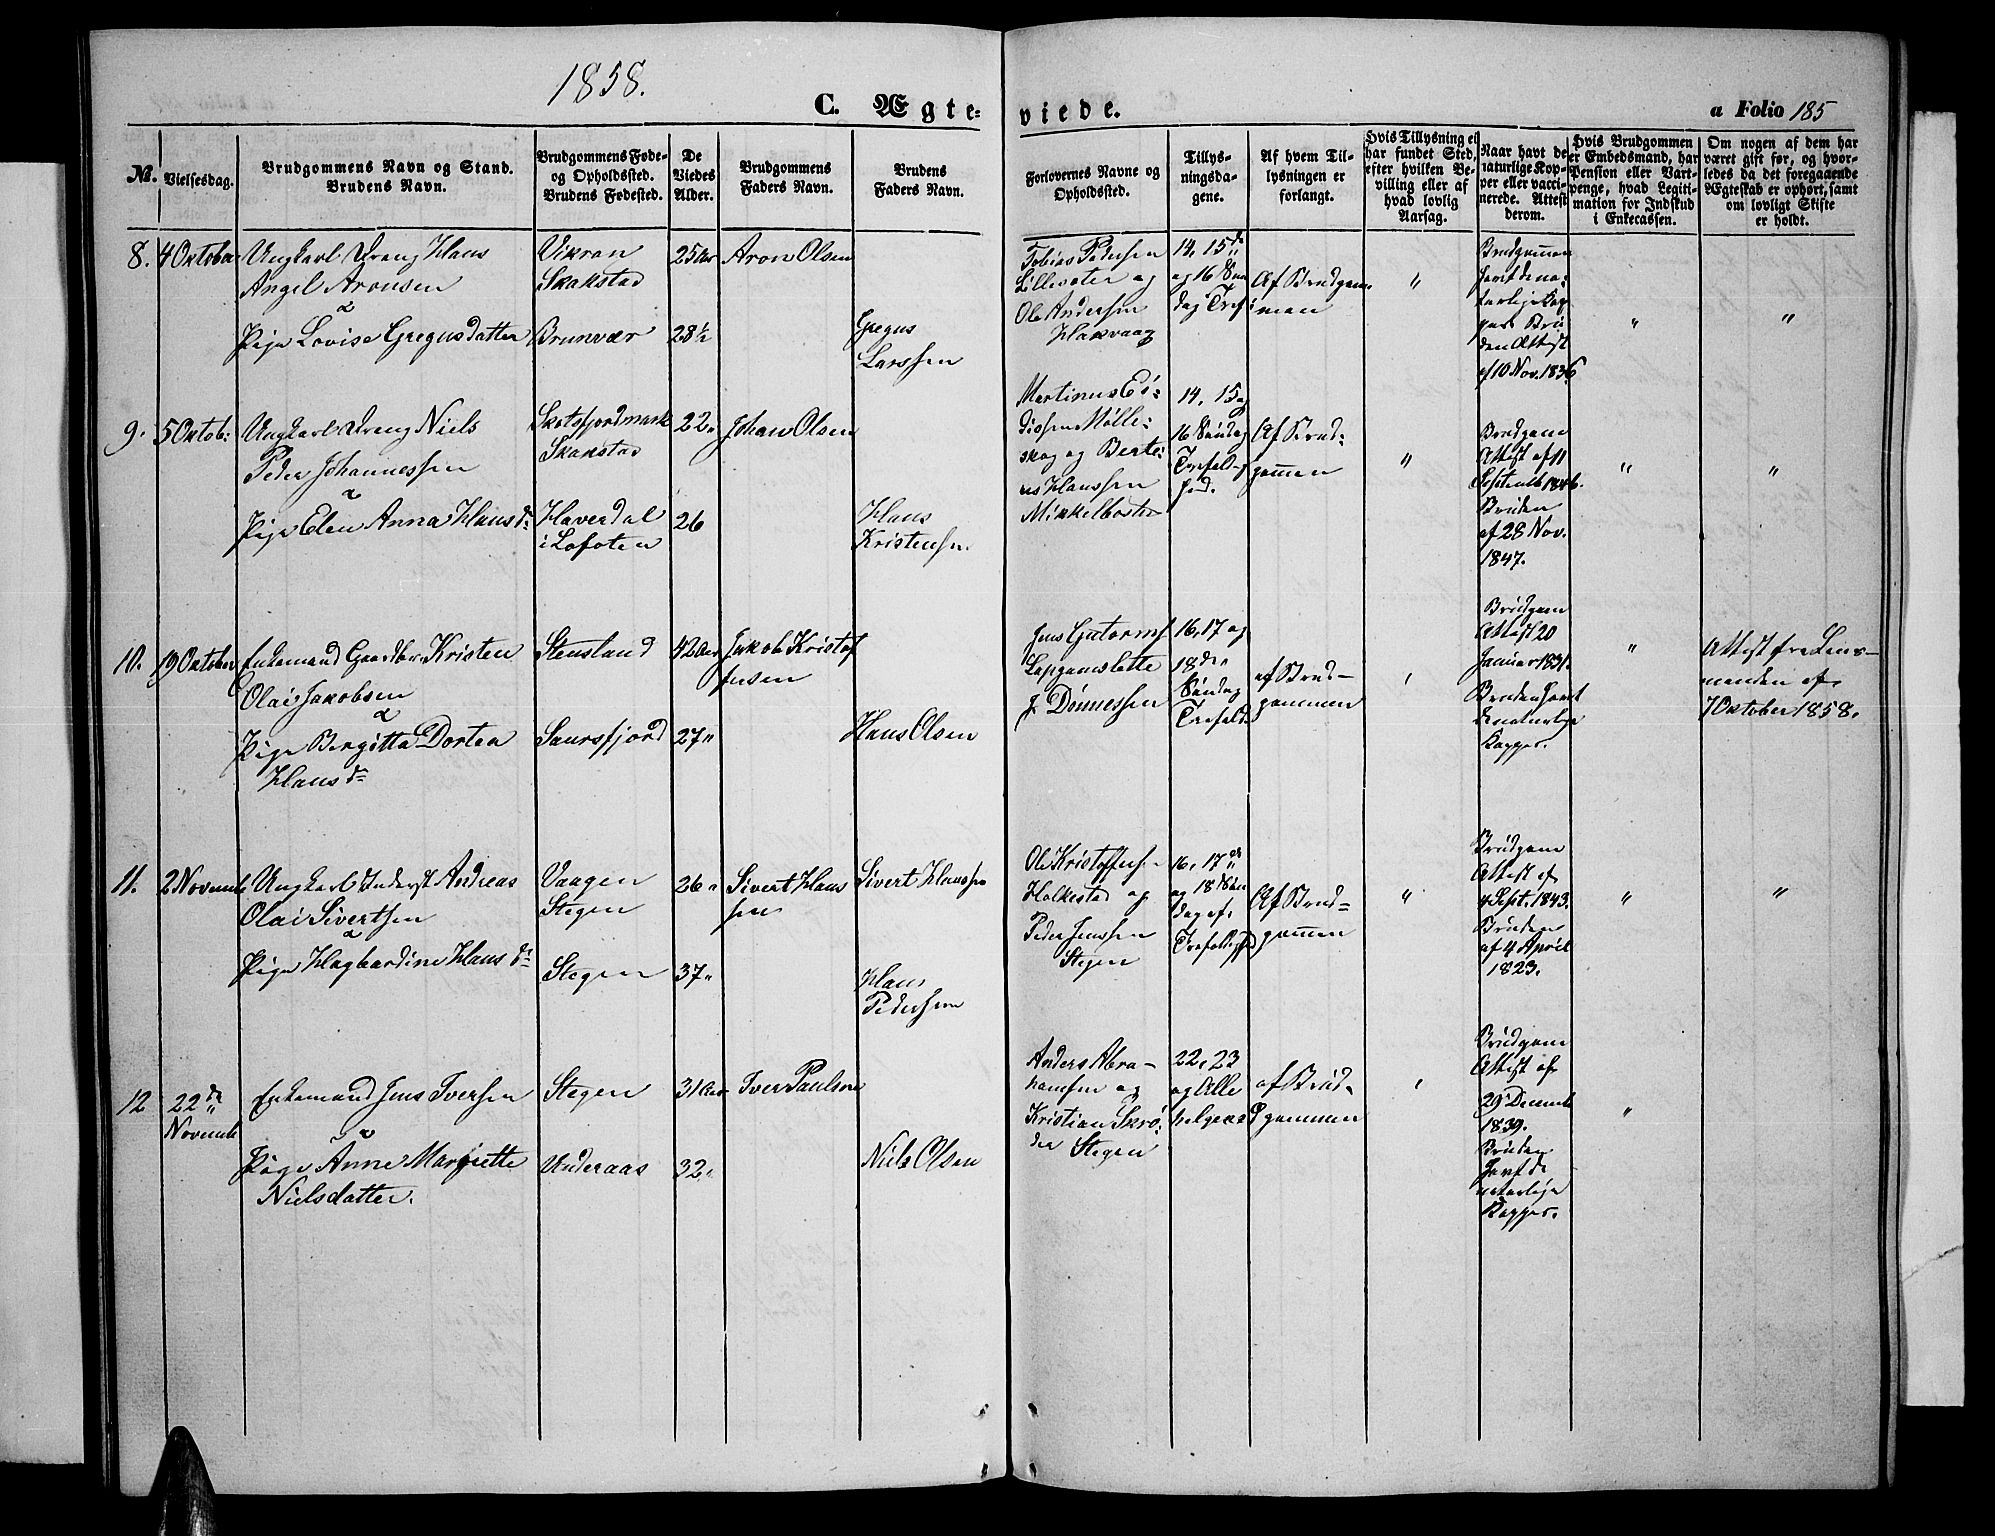 1858.
C. Ægte-
viede.
a Folio 185
No.
Vielsesdag.
Brudgommens Navn og Stand.
Brudens Navn.
Brudgommens Føde-
og Opholdssted.
Brudens Fødested.
De
Viedes
Alder.
Brudgommens
Faders Navn.
Brudens
Faders Navn.
Forlovernes Navne og
Opholdssted.
Tillys-
ningsda-
gene.
Af hvem Til-
lysningen er
forlangt.
Hvis Tillysning ei
har fundet Sted,
efter hvilken Be-
villing eller af
hvad lovlig
Aarsag.
Naar havt de
naturlige Kop-
per eller vacci-
nerede. Attest
derom.
Hvis Brudgommen
er Embedsmand, har
Pension eller Vart-
penge, hvad Legiti-
mation for Indskud
i Enkecassen.
Om nogen af dem har
været gift før, og hvor-
ledes da det foregaaende
Ægteskab er ophørt, samt
om lovligt Skifte
er holdt.
8. 4 October
Ungkarl Dreng Hans
Angel Aronsen
&
Pige Lovise Gregusdatter
Vikran
Skakstad
Brunvær
25 Aar
28½
Aron Olsen
Gregus
Larssen
Tobias Pedersen
og
Ole Andersen
Hakvaag
14, 15de
og 16 Søn
dag Tref
Af Brudgom-
men
"
Brudgommen
havt de na-
turlige Kop
per Bru
den Attest
af 10 Nov. 1836
"
"
9. 5 Octob:
Ungkarl Dreng Niels
Peder Johannessen
&
Pige Elen Anna Hans dr
Skotsfjordmark
Skakstad
Haverdal
i Lofoten
22 "
26
Johan Olsen
Hans
Kristensen
Martinus Es-
diesen Mølle-
skog og Berte-
us Hanssen
Minkelbosten
14, 15 og
16 Søndag
Trefoldig
hed.
Af Brud-
gommen
"
Brudgom
Attest af 11
Septemb 1846.
Bruden
af 28 Nov.
1847.
"
"
10. 19 October
Enkemand Gaardbr. Kristen
Olai Jakobsen
&
Pige Birgitta Dortea
Hans dr
Stensland
Saursfjord
42 Aar
27 "
Jakob Kristof
fersen
Hans Olsen
Jens Gutorms
J. Dønnessen
16, 17 og
18de
Søndag
Trefold
af Brud-
gommen
Brudgom
Attest 20
Januar 1831.
Bruden havt
de naturlige
Kopper.
"
Attest fra Lens-
manden af
7 October 1858.
11. 2 Novemb
Ungkarl Inderst Andreas
Olai Sivertsen
&
Pige Hagbardine Hans dr
Vaagen
Stegen
Stegen
26 "
37 "
Sivert Hans
sen
Sivert Hanssen
Hans
Pedersen
Ole Kristoffers-
Holkestad og
Peder Jenssen
Stegen
16, 17de
og 18 Søn
dag ef.
Trefoldighed
Af Brud-
gommen
"
Brudgom
Attest af
4 Sept. 1843.
Bruden
af 4 April
1823.
"
"
12 22de
Novemb
Enkemand Jens Iversen
&
Pige Anne Margrette
Nielsdatter.
Stegen
Underaas
31 Aar
32 "
Iver Paulsen
Niels Olsen
Anders Abra-
hamsen og
Kristian Skrø-
der Stegen
22, 23
og Alle
helgens D
af Brud-
gommen
Brudgom
Attest af
29 Decemb
1839.
Bruden
havt de
naturlige
Kopper.
"